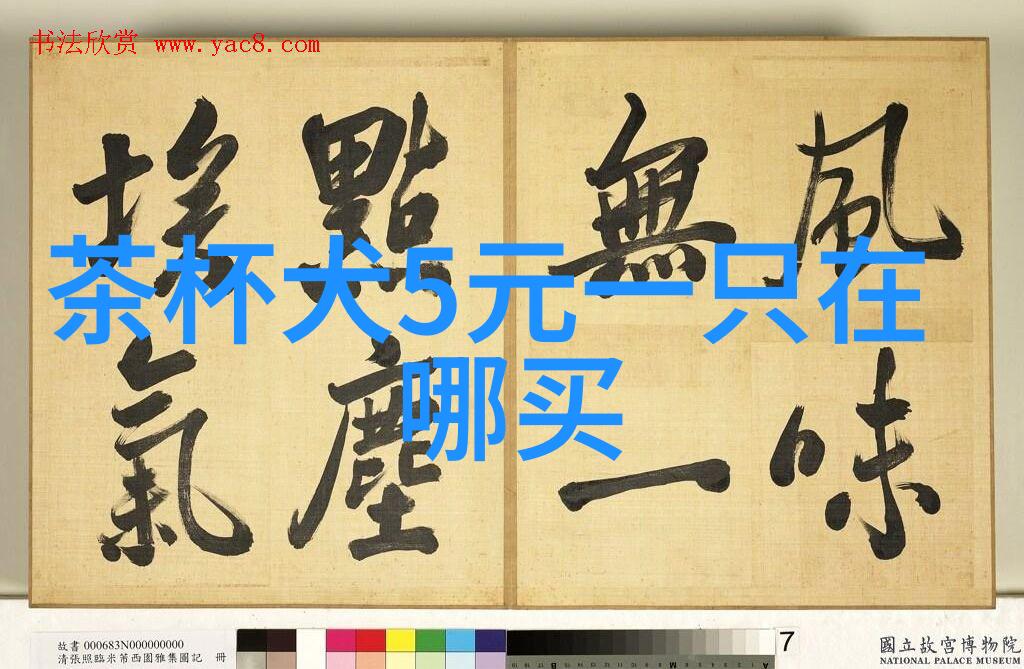 书法欣赏 www.yac8.com
風味
無一
點塵
埃氣
茶杯犬5元一只在
哪买
故書 000683N000000000
清張照臨米芾西園雅集圖記 冊
7
國立故宮博物院
NATIONAL PALACE MUSEUM